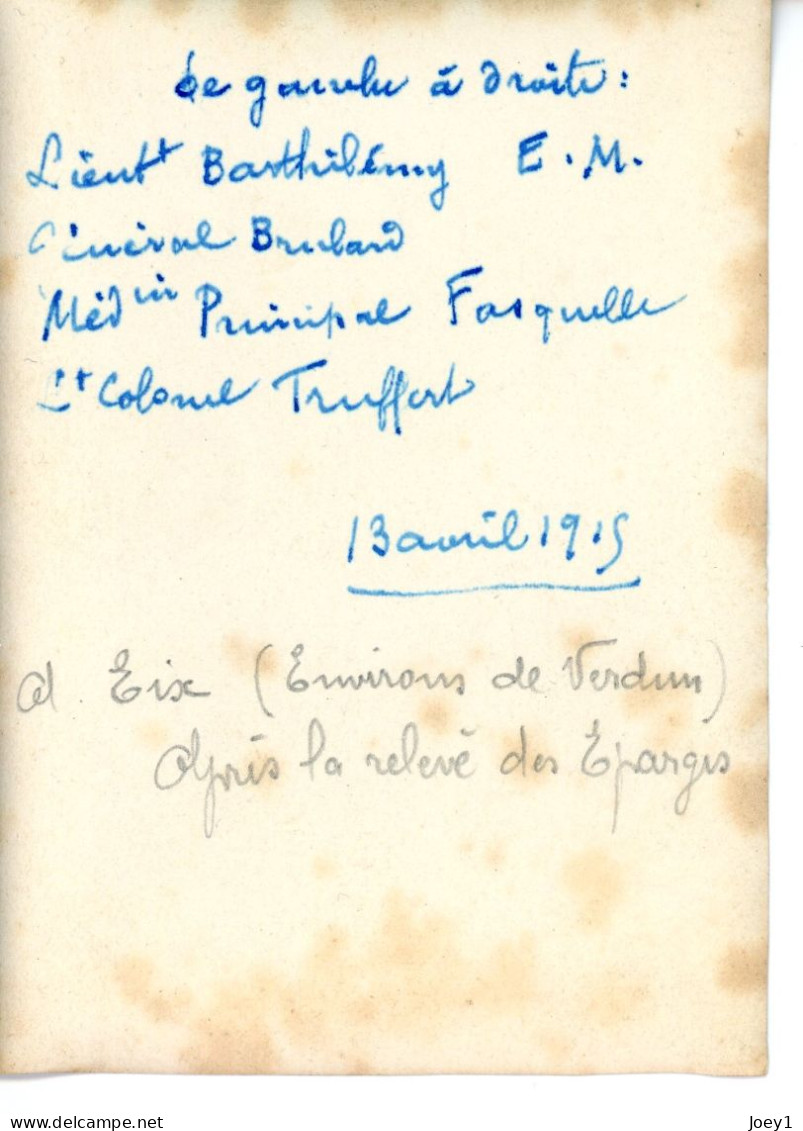 De gauche à droite :
Lieutt Barthélémy E.M.
Général Brulard
Médin Principal Fasquelle
Lt Colonel Truffert
13 avril 1915
A Eix (Environs de Verdun)
Après la relevé des Éparges
www.delcampe.net
Joey1